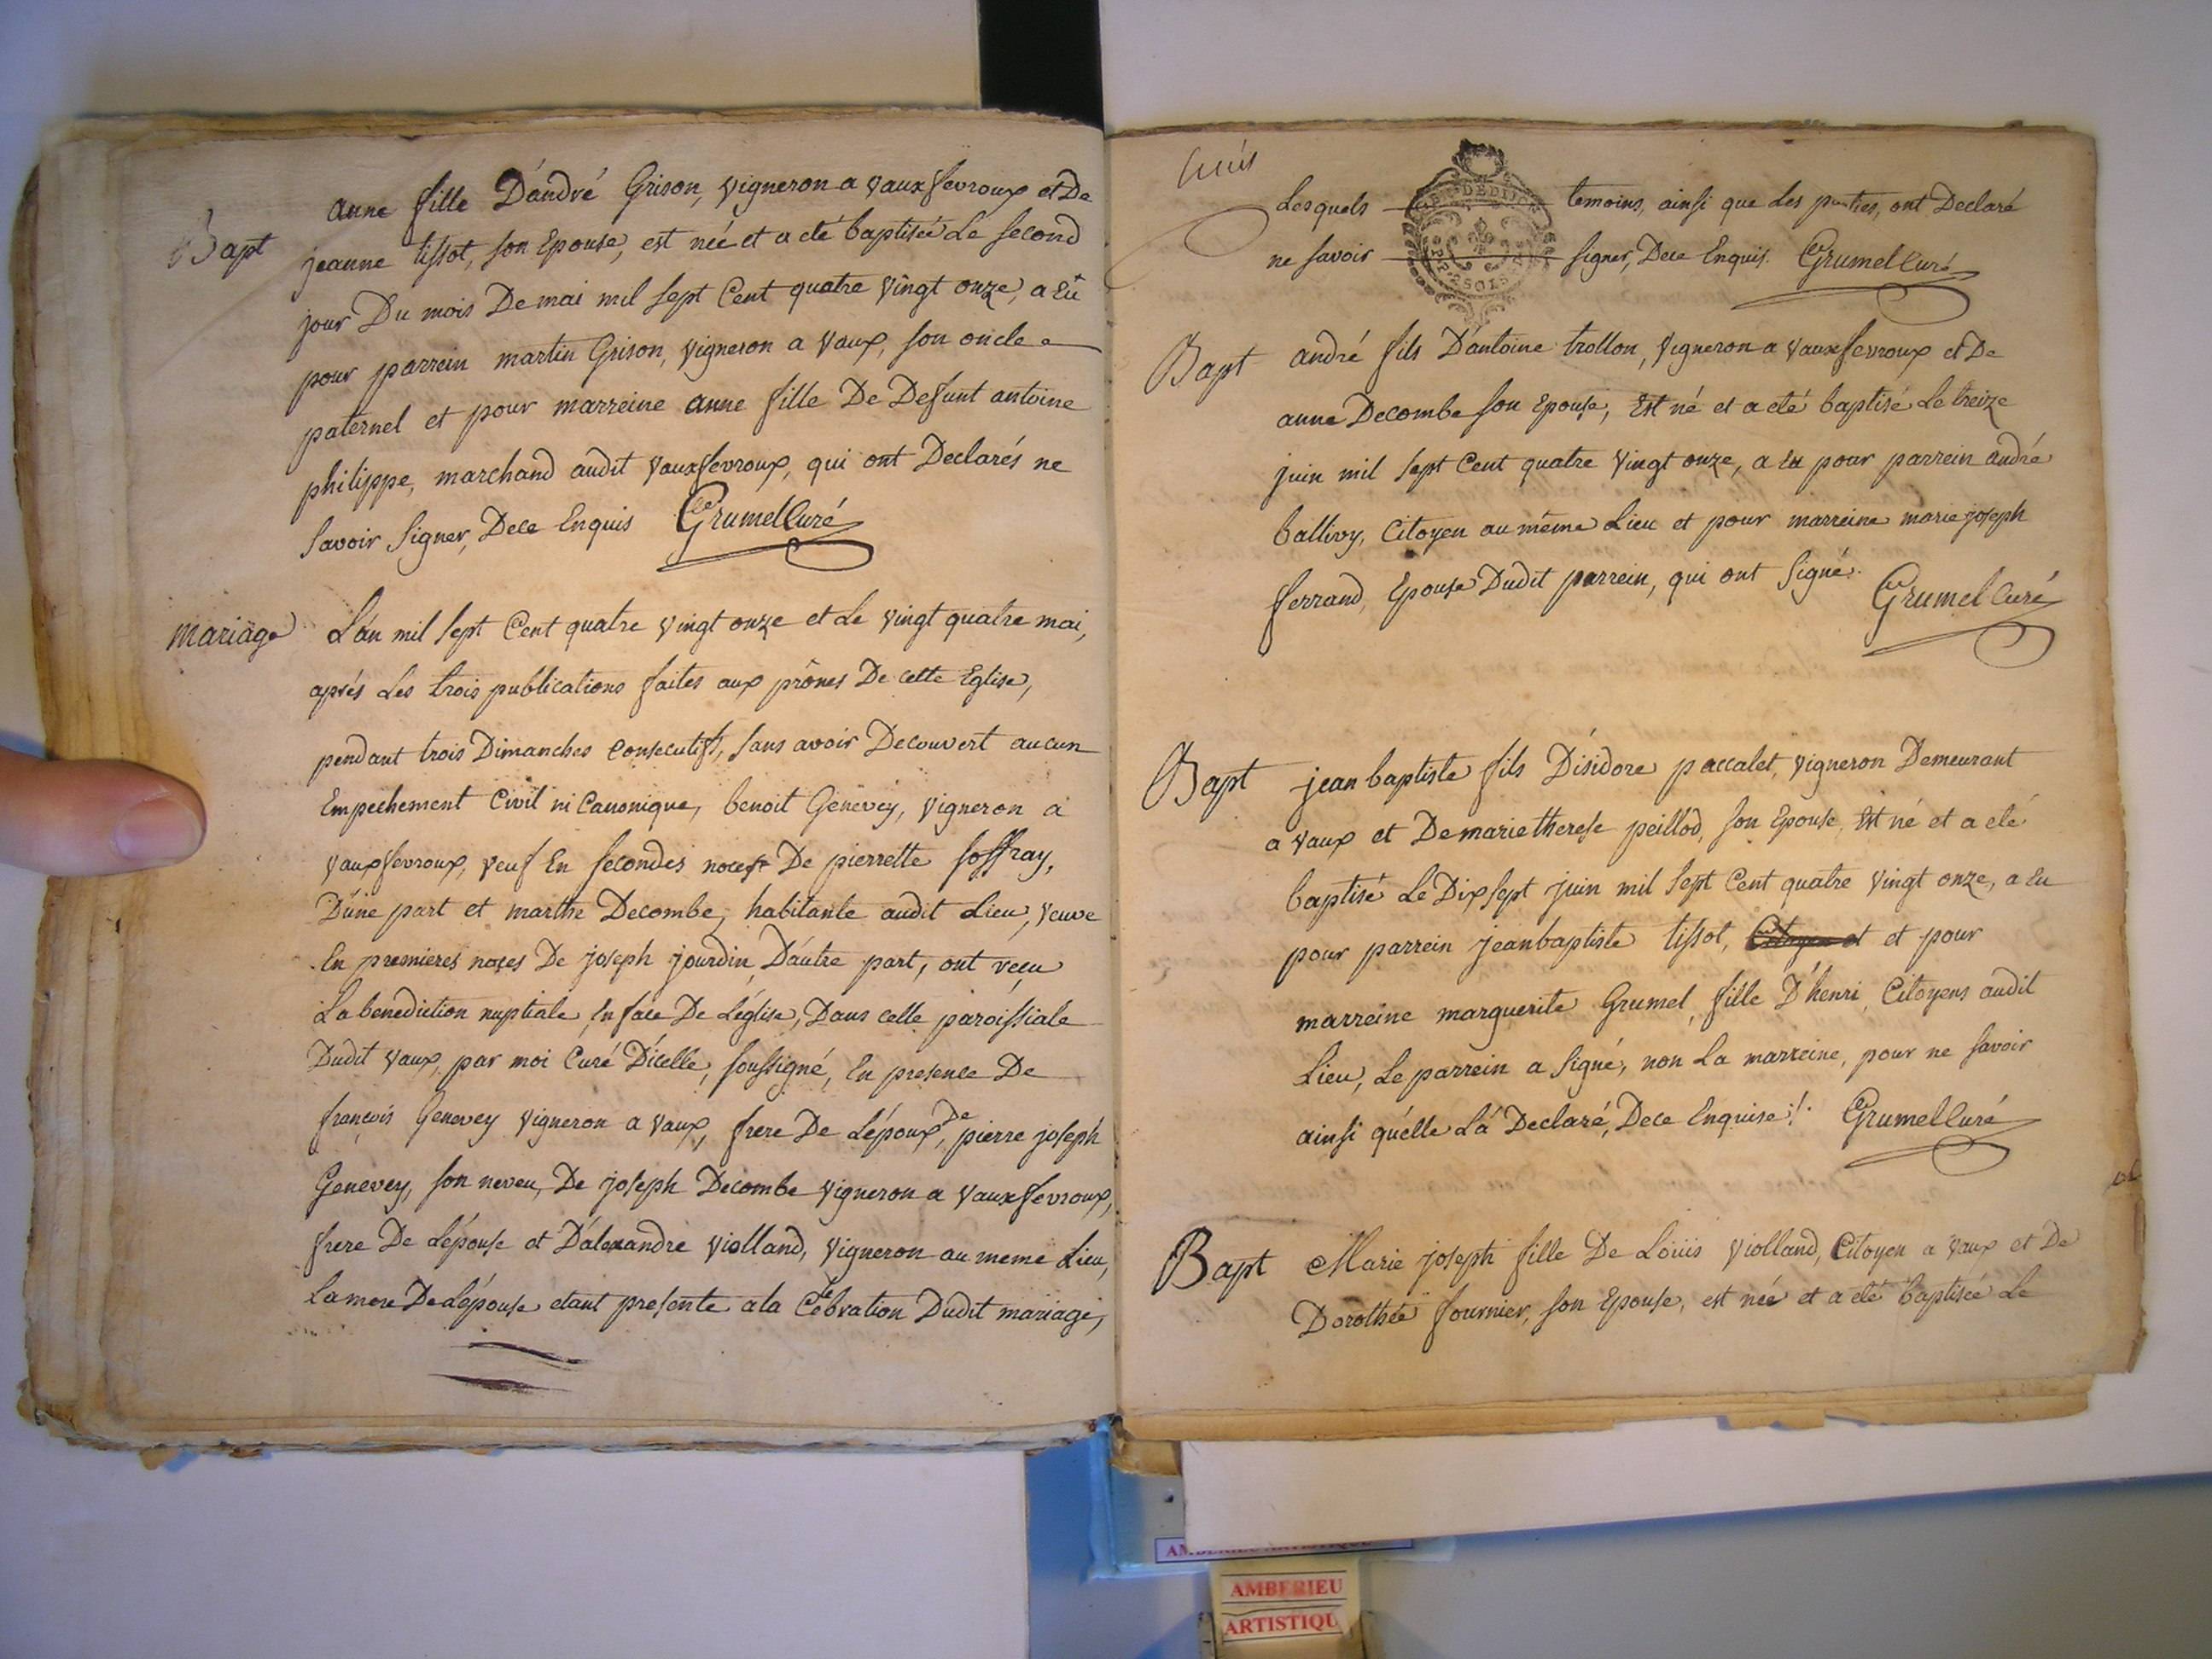 Bapt
anne fille D'andré Grison, vigneron a vauxfevroux et De
jeanne tissot, son Epouse, est née et a eté baptisée Le second
jour Du mois De mai mil sept Cent quatre vingt onze, a Eû
pour parrein martin Grison, vigneron a vaux, son oncle
paternel et pour marreine anne fille De Defunt antoine
philippe, marchand audit vauxfevroux, qui ont Declarés ne
savoir signer, Dece Enquis Grumel Curé
mariage
L'an mil sept Cent quatre vingt onze et Le vingt quatre mai,
aprés Les trois publications faites aux prônes De cette Eglise,
pendant trois Dimanches consecutifs, sans avoir Decouvert aucun
Empechement Civil ni Canonique, benoit Genevey, vigneron a
vauxfevroux, veuf En secondes noces De pierrette soffray,
D'une part et marthe Decombe, habitante audit Lieu, veuve
En premieres noces De joseph jourdin, D'autre part, ont reçu
La benediction nuptiale, En face De L'église, Dans celle paroissiale
Dudit vaux, par moi Curé D'icelle, soussigné, En presence De
françois Genevey vigneron a vaux, frere De L'époux, De pierre joseph
Genevey, son neveu, De joseph Decombe vigneron a vauxfevroux,
frere De L'épouse et D'alexandre violland, vigneron au meme Lieu,
La mere De L'épouse etant presente a la Célebration Dudit mariage,
Lesquels temoins, ainsi que Les parties, ont Declaré
ne savoir signer, Dece Enquis. Grumel Curé
Bapt
andré fils D'antoine trollon, vigneron a vauxfevroux et De
anne Decombe son Epouse, Est né et a eté baptisé Le treize
juin mil sept Cent quatre vingt onze, a Eu pour parrein andré
ballivy, Citoyen au même Lieu et pour marreine marie joseph
ferrand, Epouse Dudit parrein, qui ont signé. Grumel Curé
Bapt
jean baptiste fils D'isidore paccalet, vigneron Demeurant
a vaux et De marie therese peillod, son Epouse, Est né et a eté
baptisé Le Dix sept juin mil sept Cent quatre vingt onze, a Eu
pour parrein jean baptiste tissot, Citoyen et et pour
marreine marguerite Grumel, fille D'henri, Citoyens audit
Lieu, Le parrein a signé, non La marreine, pour ne savoir
ainsi qu'elle L'a Declaré, Dece Enquise. Grumel Curé
Bapt
Marie joseph fille De Loüis violland, Citoyen a vaux et De
Dorothée fournier, son Epouse, est née et a eté baptisée Le
AMBERIEU ARTISTIQUE
AMBERIEU
ARTISTIQU